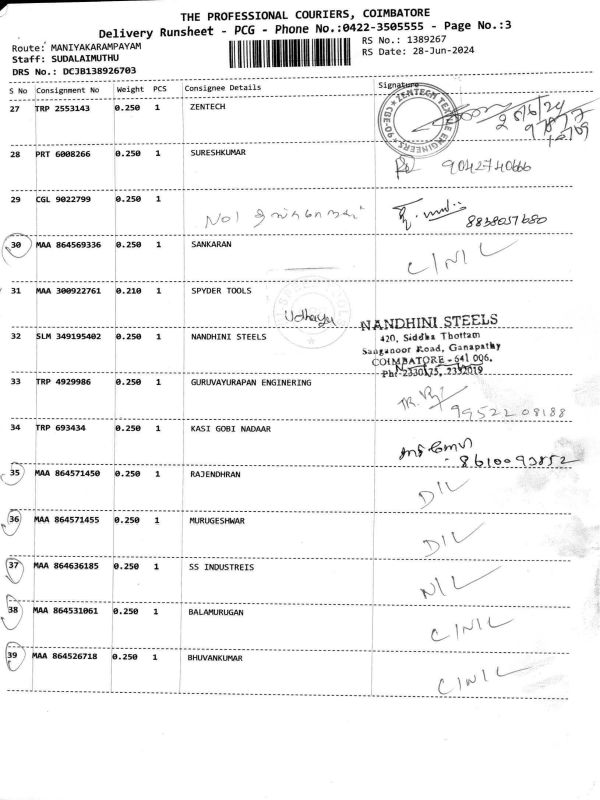 THE PROFESSIONAL COURIERS, COIMBATORE
Delivery Runsheet - PCG - Phone No.:0422-3505555 - Page No.:3
Route: MANIYAKARAMPAYAM
RS No.: 1389267
Staff: SUDALAIMUTHU
RS Date: 28-Jun-2024
DRS No.: DCJB138926703
S No Consignment No Weight PCS Consignee Details Signature
27 TRP 2553143 0.250 1 ZENTECH
28 PRT 6008266 0.250 1 SURESHKUMAR
9042740666
29 CGL 9022799 0.250 1
No1
8838057680
30 MAA 864569336 0.250 1 SANKARAN
C/N/L
31 MAA 300922761 0.210 1 SPYDER TOOLS
Udhaya
32 SLM 349195402 0.250 1 NANDHINI STEELS
NANDHINI STEELS
420, Siddha Thottam
Sanganoor Road, Ganapathy
COIMBATORE - 641 006.
Ph: 2330175, 2332019
33 TRP 4929986 0.250 1 GURUVAYURAPAN ENGINERING
9952208188
34 TRP 693434 0.250 1 KASI GOBI NADAAR
8610093852
35 MAA 864571450 0.250 1 RAJENDHRAN
D/L
36 MAA 864571455 0.250 1 MURUGESHWAR
D/L
37 MAA 864636185 0.250 1 SS INDUSTREIS
N/L
38 MAA 864531061 0.250 1 BALAMURUGAN
C/N/L
39 MAA 864526718 0.250 1 BHUVANKUMAR
C/N/L